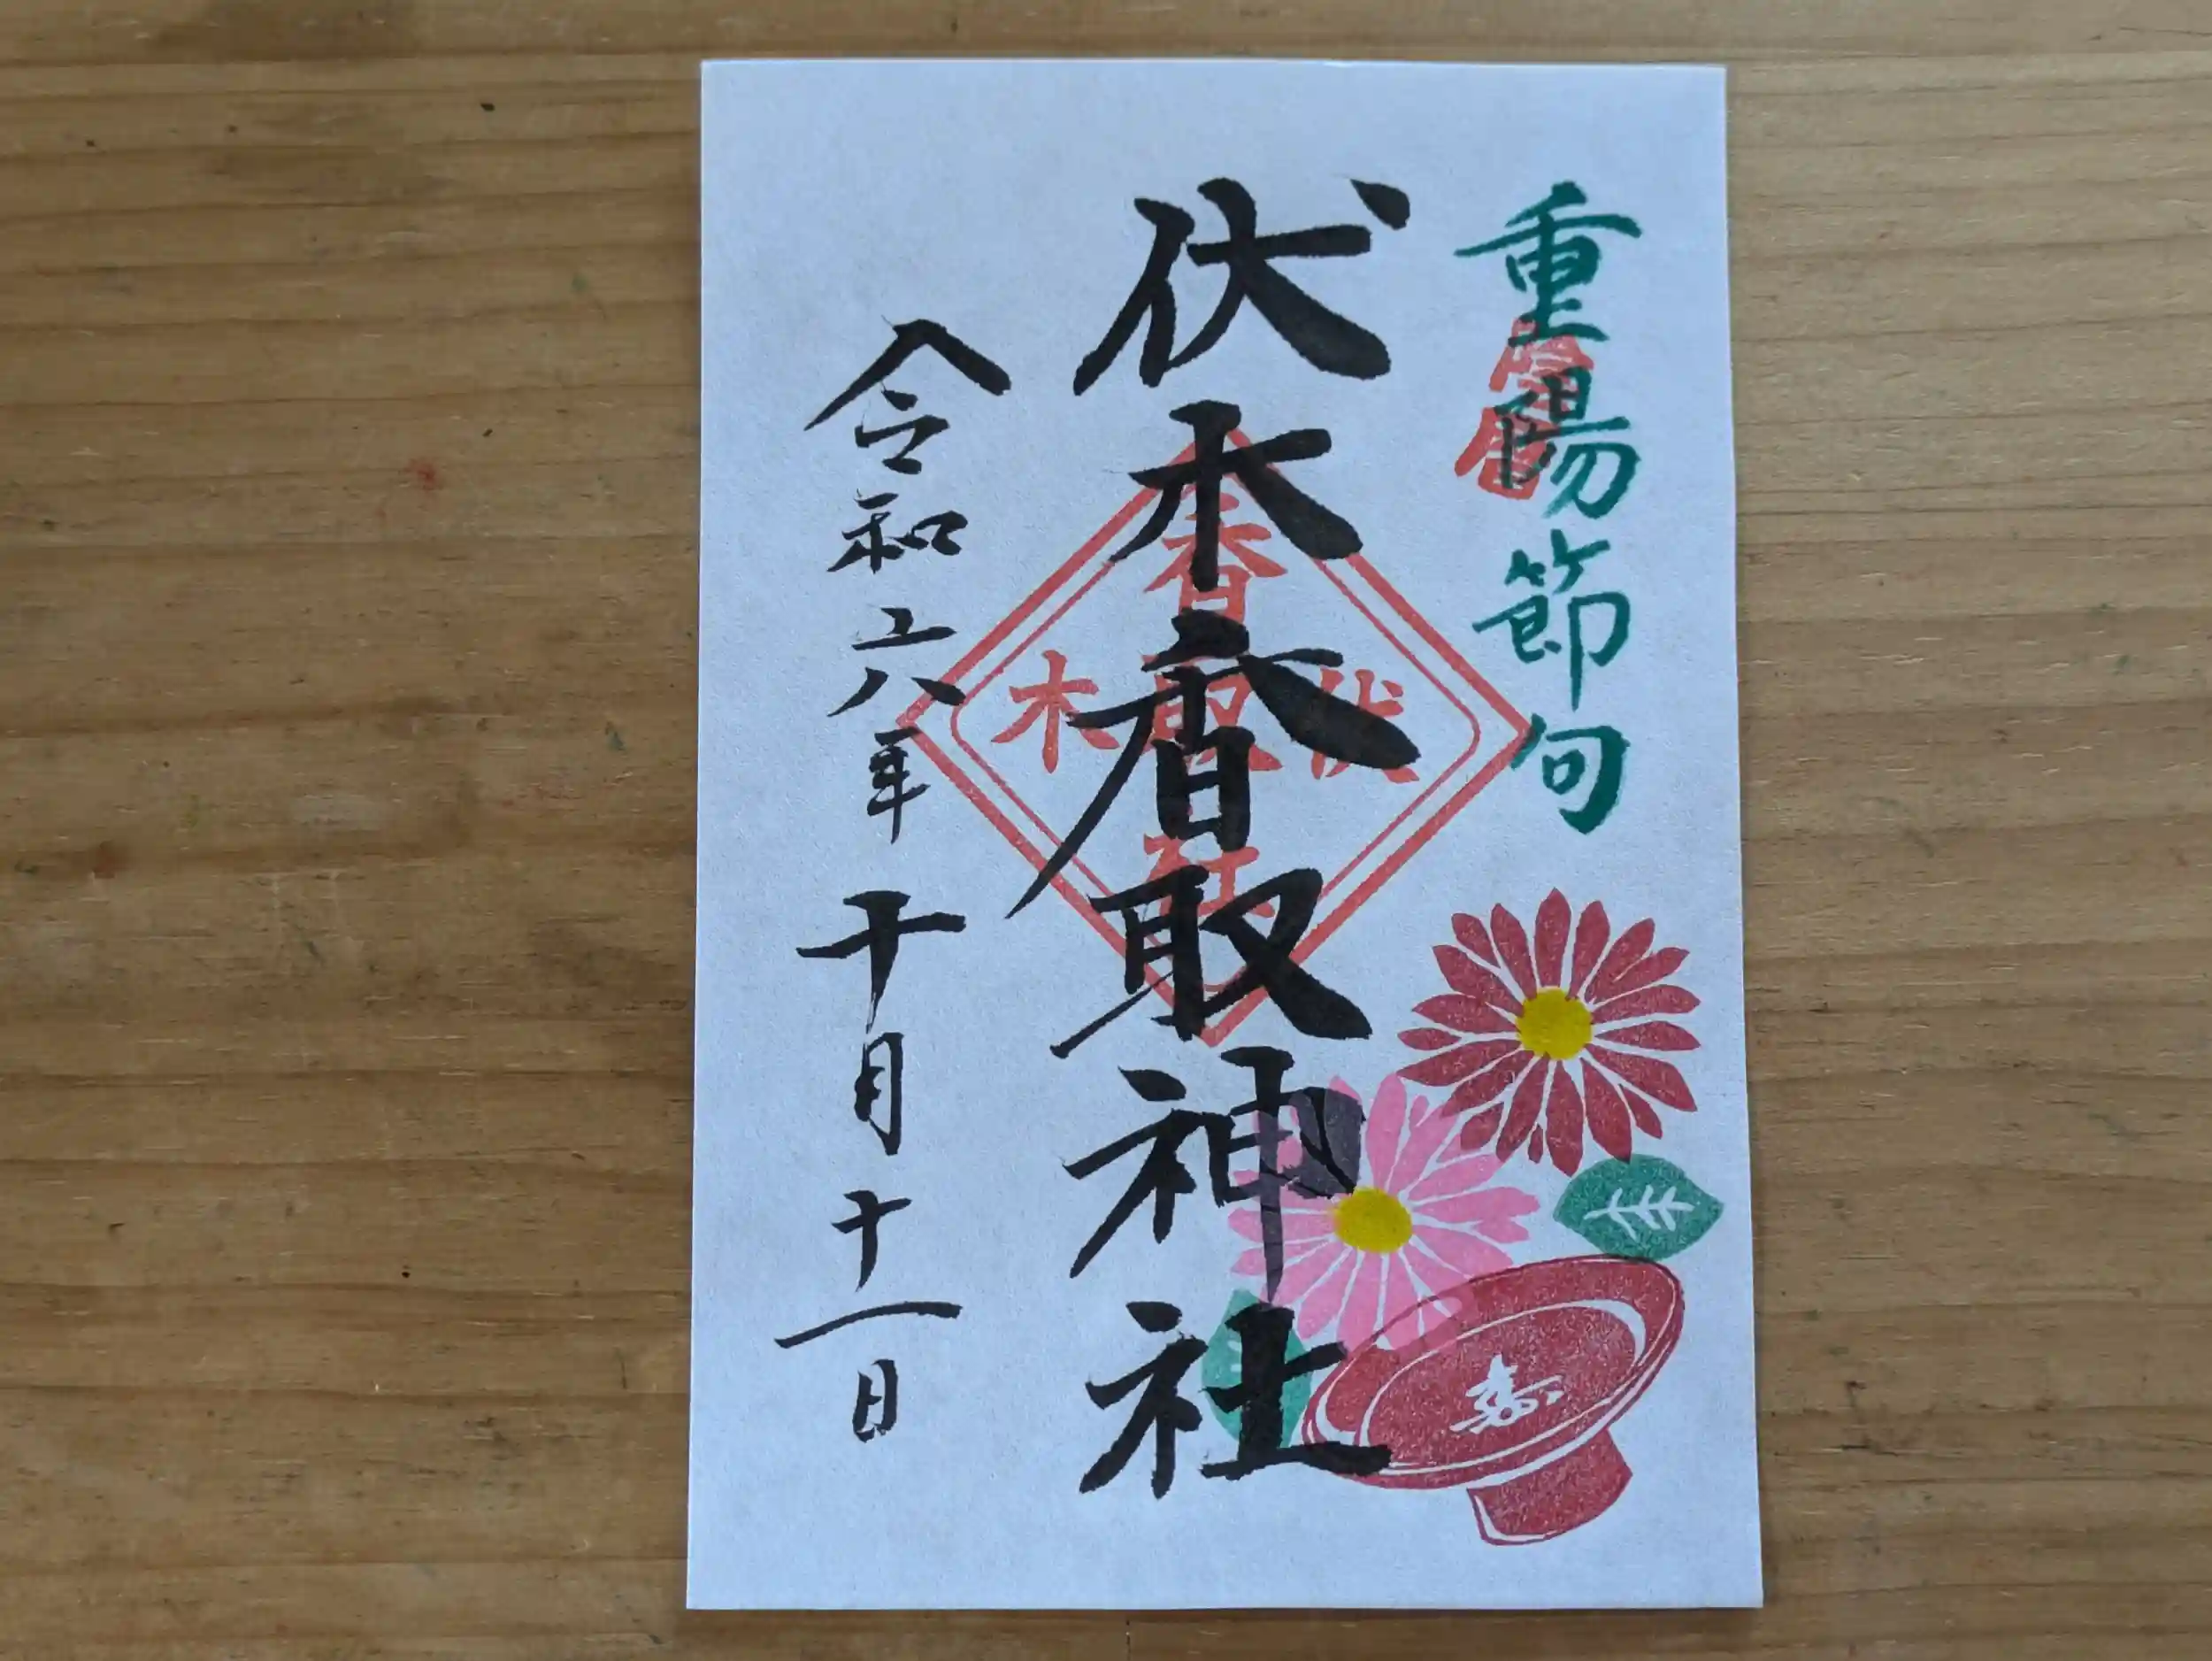 重陽節句
旧暦
伏木香取神社
香取社
伏木
令和六年十月十一日
寿